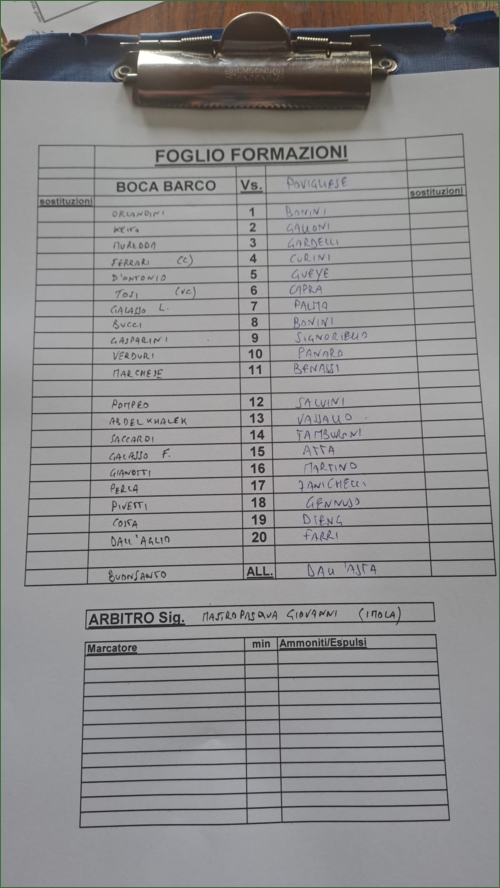 FOGLIO FORMAZIONI
BOCA BARCO Vs. POVIGLIESE
sostituzioni sostituzioni
ORLANDINI 1 BONINI
KEITA 2 GALLONI
MUREDDA 3 GARDELLI
FERRARI (C) 4 CURINI
D'ANTONIO 5 GUEYE
TOSI (VC) 6 CAPRA
GALASSO L. 7 PALMA
BUCCI 8 BONINI
GASPARINI 9 SIGNORIELLO
VERDURI 10 PANARO
MARCHESE 11 BENASSI
POMPEO 12 SALVINI
ABDELKHALEK 13 VASSALLO
SACCARDI 14 TAMBURONI
GALASSO F. 15 ATTA
GIANOTTI 16 MARTINO
PERLA 17 ZANICHELLI
PIVETTI 18 GENNUSO
COSTA 19 DIENG
DALL'AGLIO 20 FARRI
BUONSANTO ALL. DALL'ASTA
ARBITRO Sig. MASTROPASQUA GIOVANNI (IMOLA)
Marcatore min Ammoniti/Espulsi